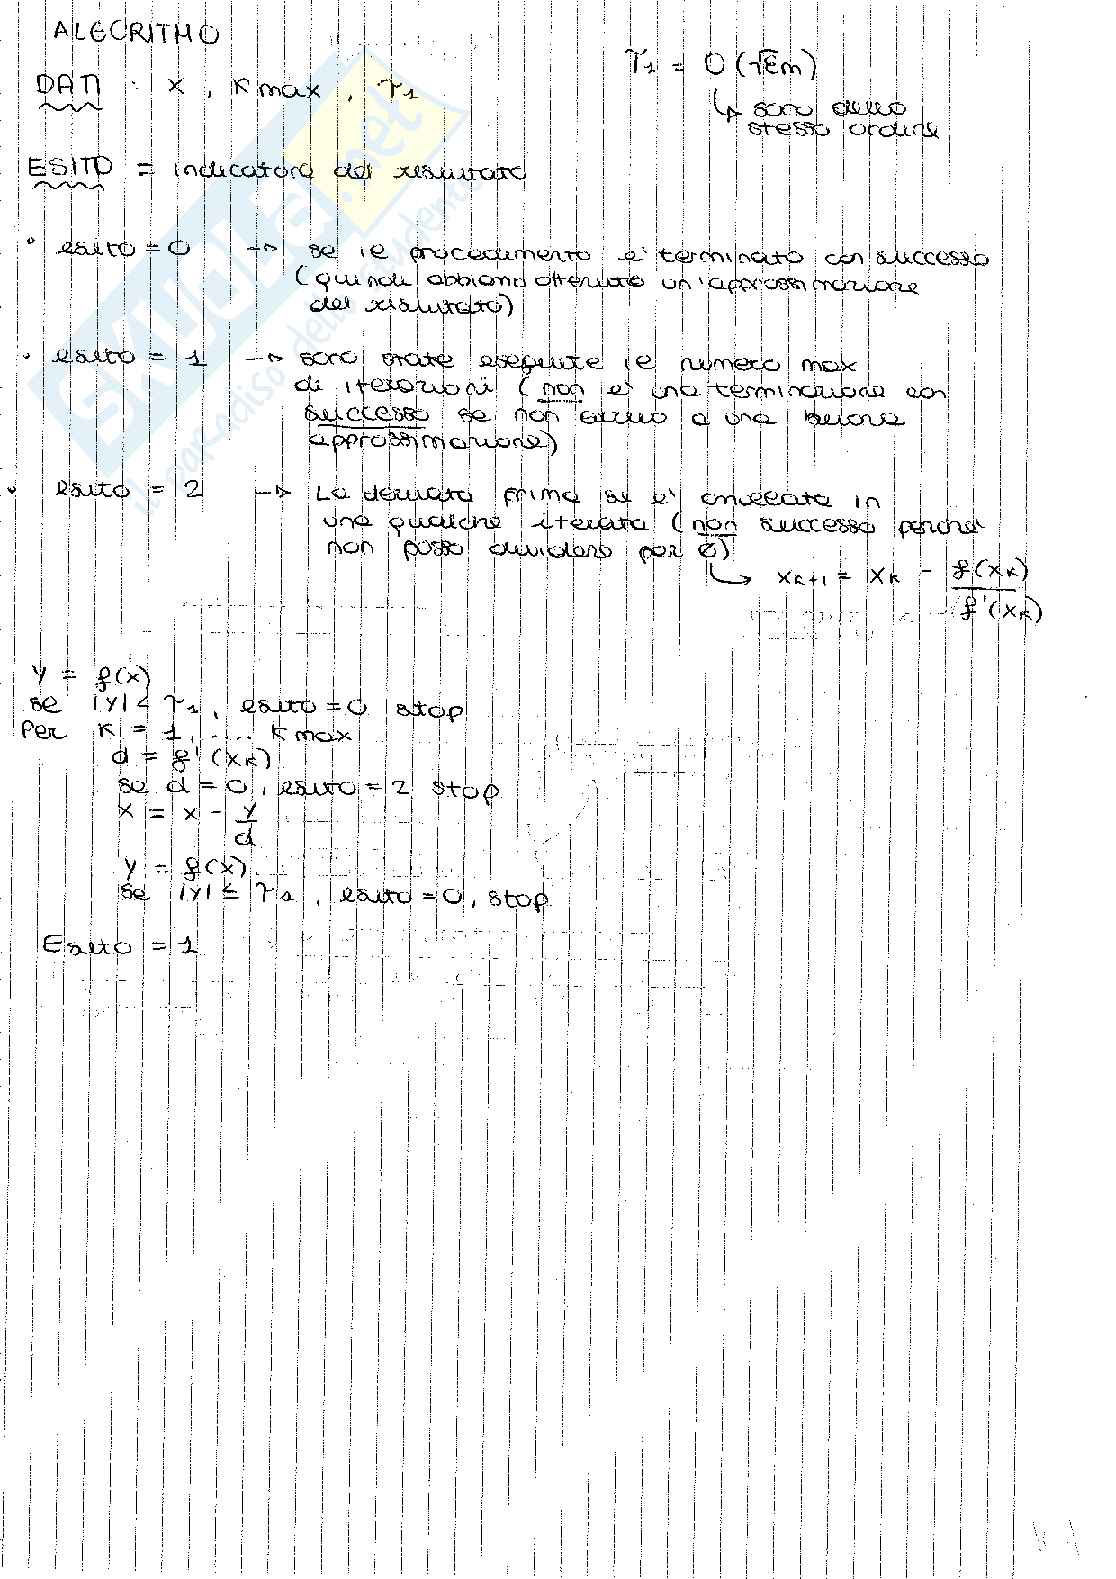 ALGORITMO
DATI : x , Kmax , τ1
τ1 = O(√εm)
↳ sono dello
stesso ordine
ESITO = indicatore del risultato
• esito = 0 → se il procedimento e' terminato con successo
(quindi abbiamo ottenuto un'approssimazione
del risultato)
• esito = 1 → sono state eseguite il numero max
di iterazioni ( non e' una terminazione con
successo se non arrivo a una buona
approssimazione)
• esito = 2 → La derivata prima si e' annullata in
una qualche iterata ( non successo perche'
non posso dividere per 0)
↳ xk+1 = xk - f(xk) / f'(xk)
y = f(x)
se |y| ≤ τ1 , esito = 0 stop
Per K = 1, .... Kmax
d = f'(xk)
se d = 0, esito = 2 stop
x = x - y/d
y = f(x)
se |y| ≤ τ1 , esito = 0, stop
Esito = 1
SKUOLA.net
il paradiso dello studente